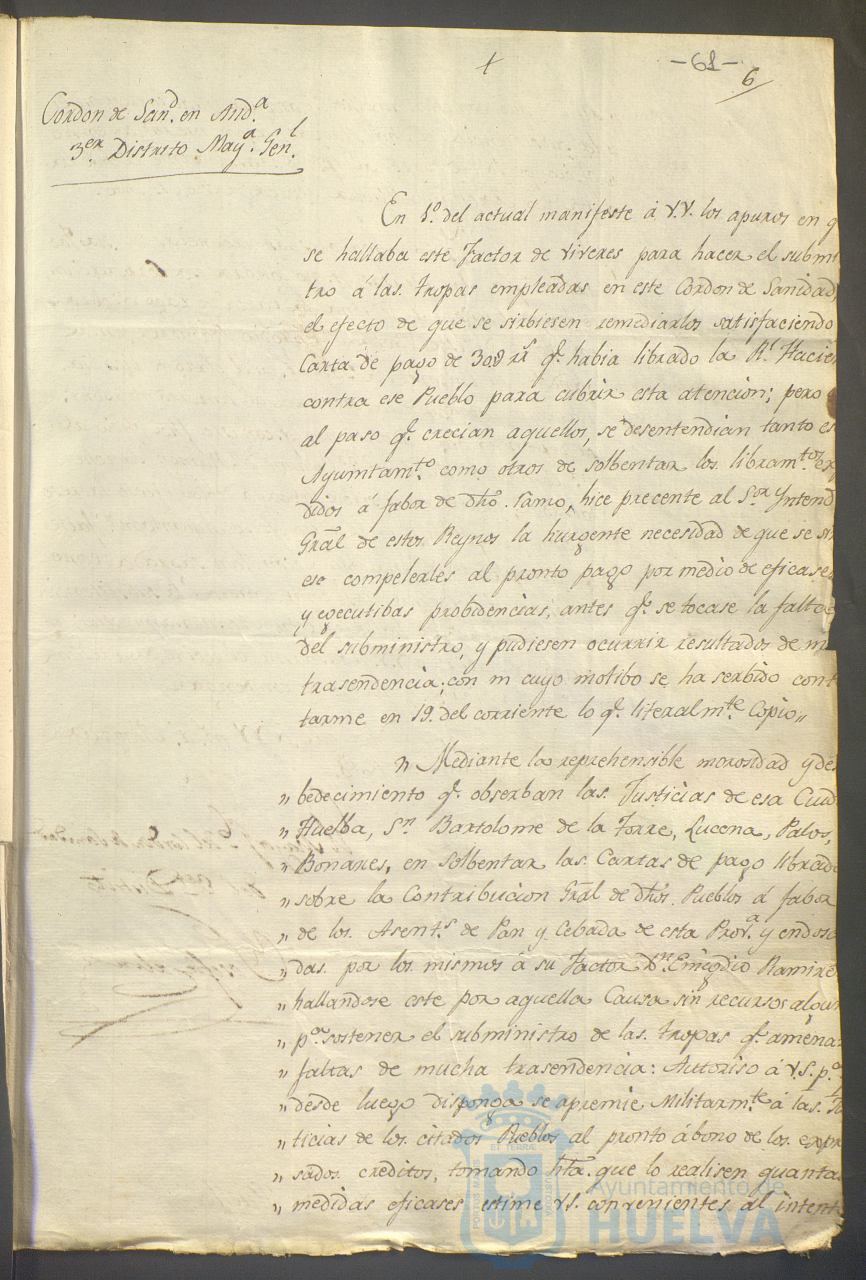 -61-
+
6
Cordon de San.d en And.a
3er Distrito May.a Gen.l
En 1º del actual manifeste á V.V. los apuros en q
se hallaba este Factor de viveres para hacer el submi
tro á las tropas empleadas en este Cordon de Sanidad,
el efecto de que se sirbiesen remediarlos satisfaciendo
Carta de pago de 30@ rs q.e habia librado la R.l Hacien
contra ese Pueblo para cubrir esta atencion; pero
al paso q.e crecian aquellos, se desentendian tanto es
Ayuntam.to como otros de solbentar los libram.tos exp
didos á fabor de dho. ramo, hice precente al S.or Yntend
Gral de estos Reynos la hurgente necesidad de que se sir
ese compelerles al pronto pago por medio de eficases
y egecutibas probidencias, antes q.e se tocase la falta
del subministro, y pudiesen ocurrir resultados de m
trasendencia; con m cuyo motibo se ha serbido cont
tarme en 19. del corriente lo q.e literalm.te Copio,,
,, Mediante la reprehensible morosidad y des
,, bedecimiento q.e obserban las Justicias de esa Ciud
,, Huelba, S.n Bartolome de la Torre, Lucena, Palos,
,, Bonares, en solbentar las Cartas de pago librada
,, sobre la Contribucion Gral de dhos. Pueblos á fabor
,, de los Asent.s de Pan y Cebada de esta Prov.a y endosa
,, das por los mismos á su Factor D.n Emigdio Ramire
,, hallandose este por aquella Causa sin recursos algun
,, p.a sostener el subministro de las tropas q.e amena
,, faltas de mucha trasendencia: Autoriso á V.S. p.a
,, desde luego disponga se apremie Militarm.te á las Ju
,, ticias de los citados Pueblos al pronto ábono de los expre
,, sados creditos, tomando hta. que lo realisen quanta
,, medidas eficases estime V.S. convenientes al intent
Ayuntamiento de
HUELVA